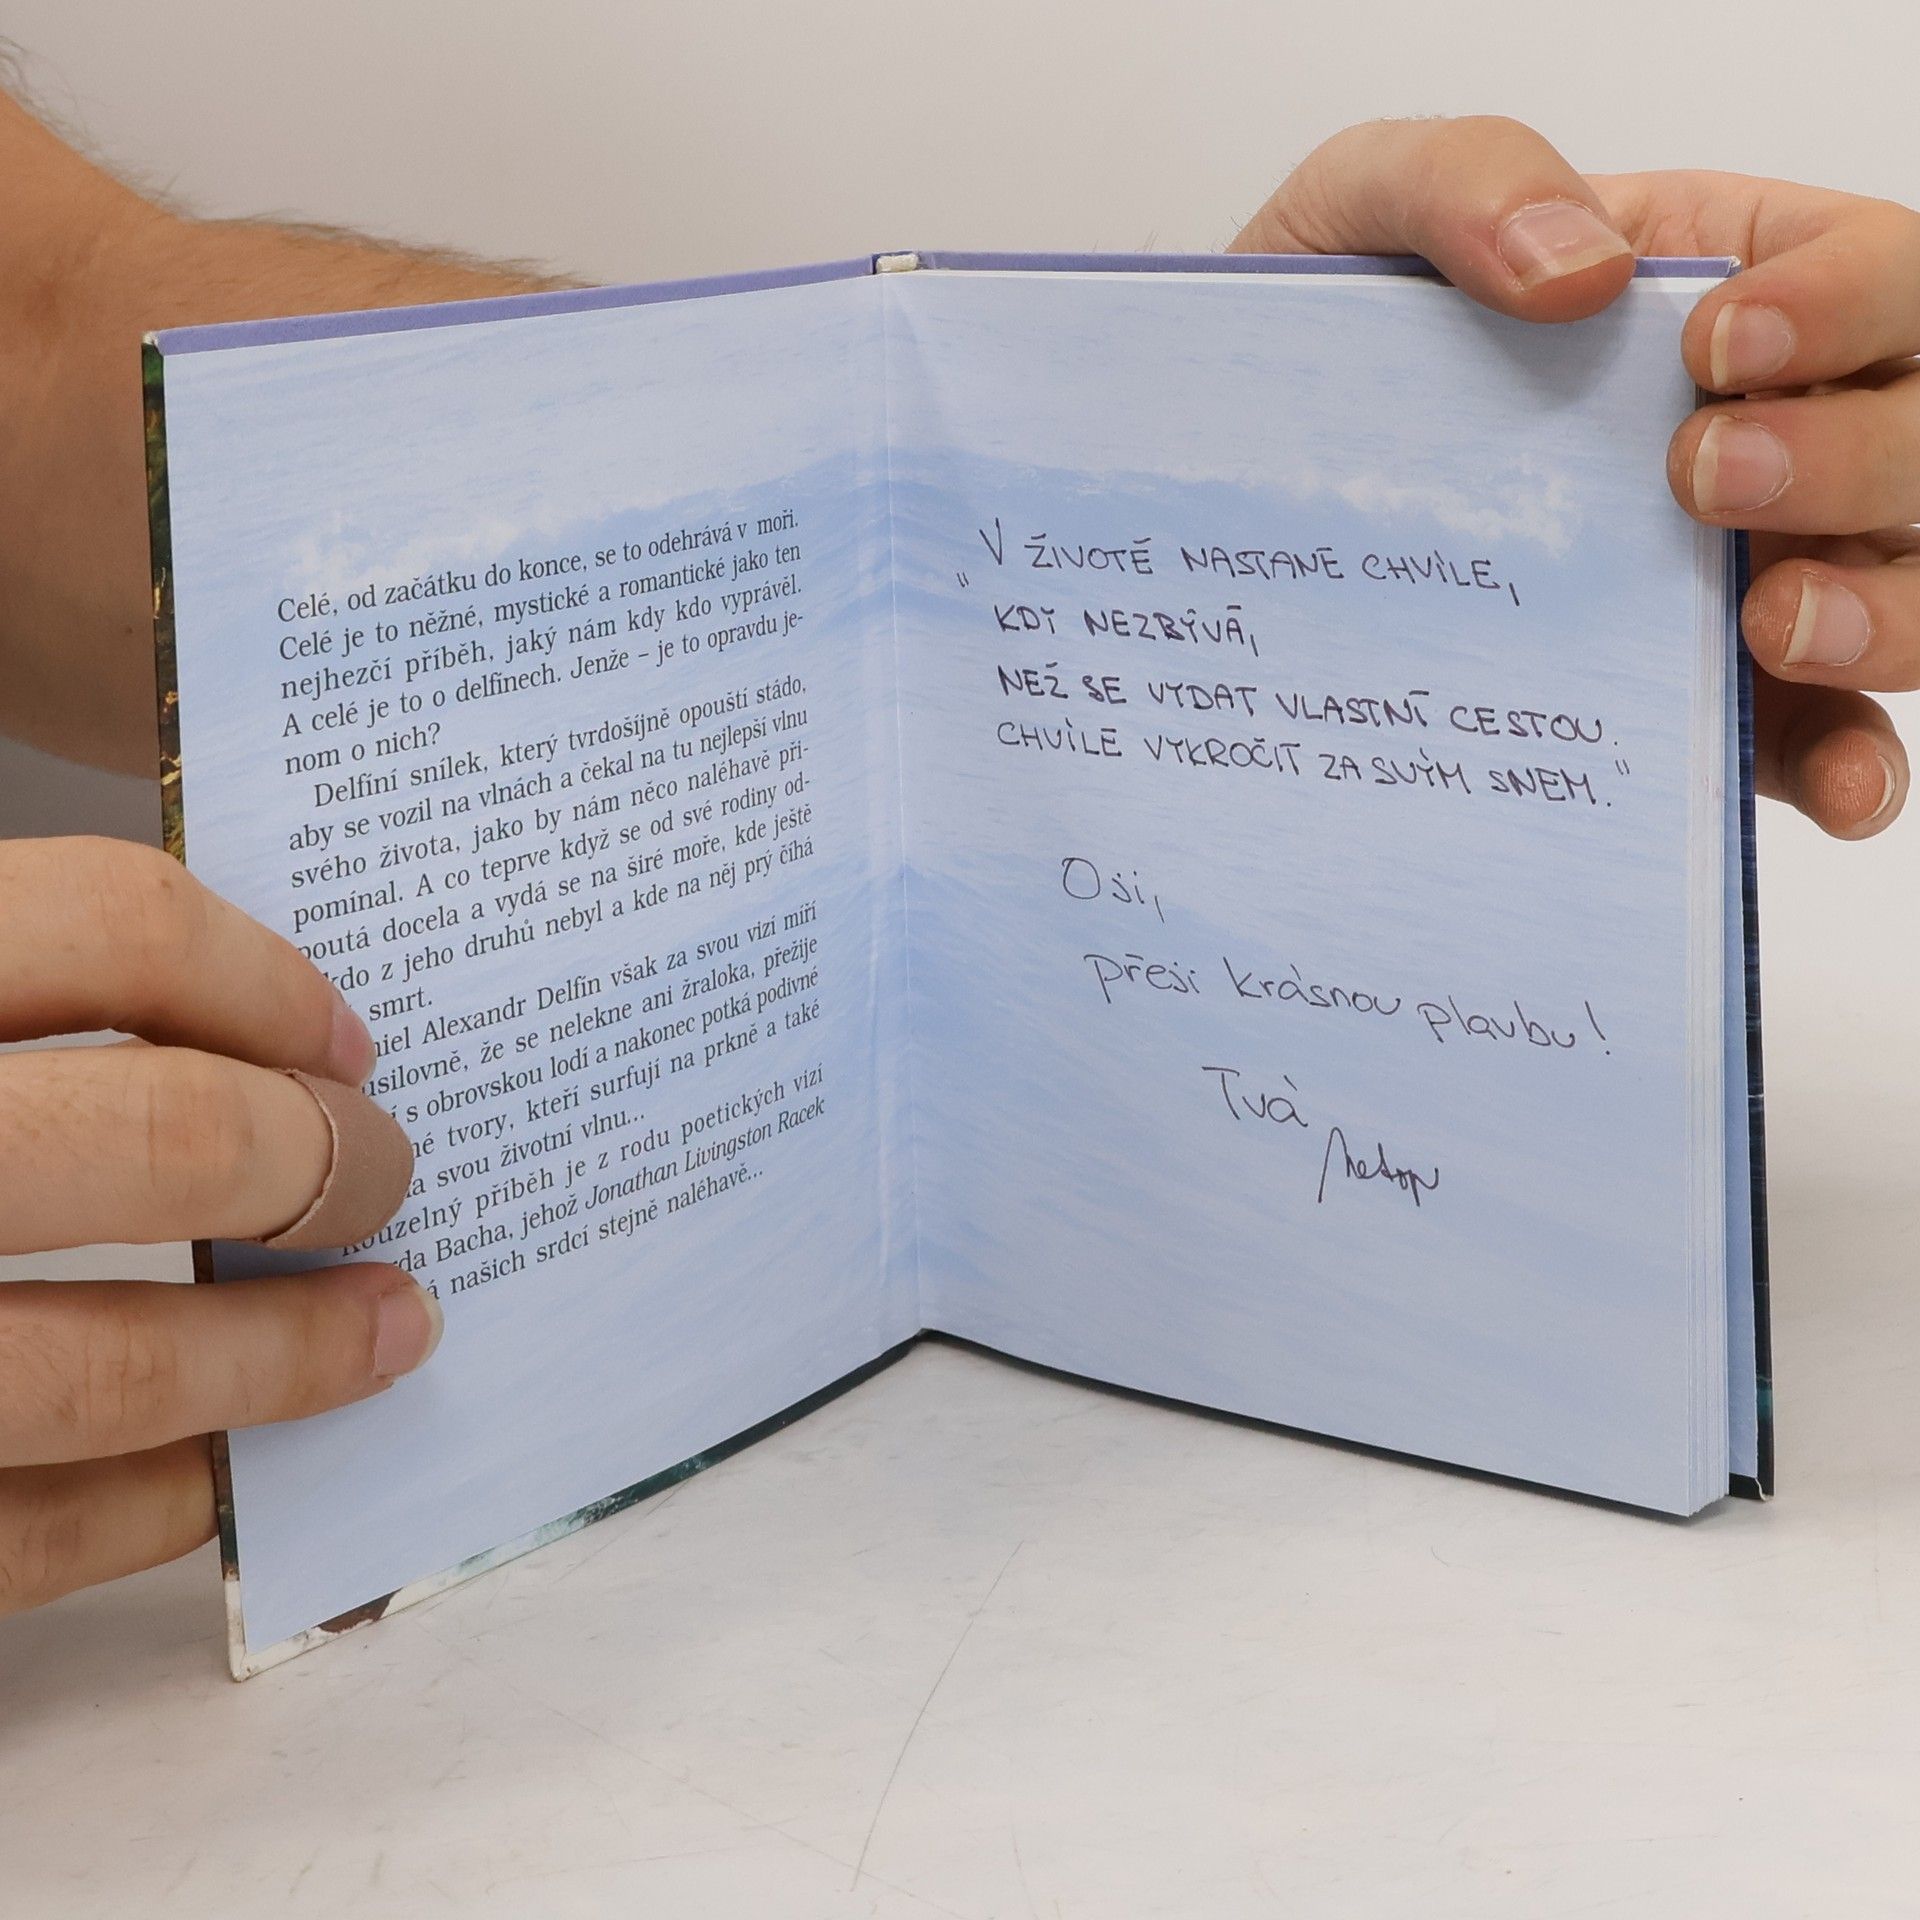 Celé, od začátku do konce, se to odehrává v moři.
Celé je to něžné, mystické a romantické jako ten
nejhezčí příběh, jaký nám kdy kdo vyprávěl.
A celé je to o delfínech. Jenže – je to opravdu je-
nom o nich?
Delfíní snílek, který tvrdošíjně opouští stádo,
aby se vozil na vlnách a čekal na tu nejlepší vlnu
svého života, jako by nám něco naléhavě při-
pomínal. A co teprve když se od své rodiny od-
poutá docela a vydá se na širé moře, kde ještě
kdo z jeho druhů nebyl a kde na něj prý číhá
smrt.
niel Alexandr Delfín však za svou vizí míří
usilovně, že se nelekne ani žraloka, přežije
í s obrovskou lodí a nakonec potká podivné
né tvory, kteří surfují na prkně a také
na svou životní vlnu...
Kouzelný příběh je z rodu poetických vizí
rda Bacha, jehož Jonathan Livingston Racek
á našich srdcí stejně naléhavě...
„V ŽIVOTĚ NASTANE CHVÍLE,
KDY NEZBÝVÁ,
NEŽ SE VYDAT VLASTNÍ CESTOU.
CHVÍLE VYKROČIT ZA SVÝM SNEM."
Osi,
přeji krásnou plavbu!
Tvá